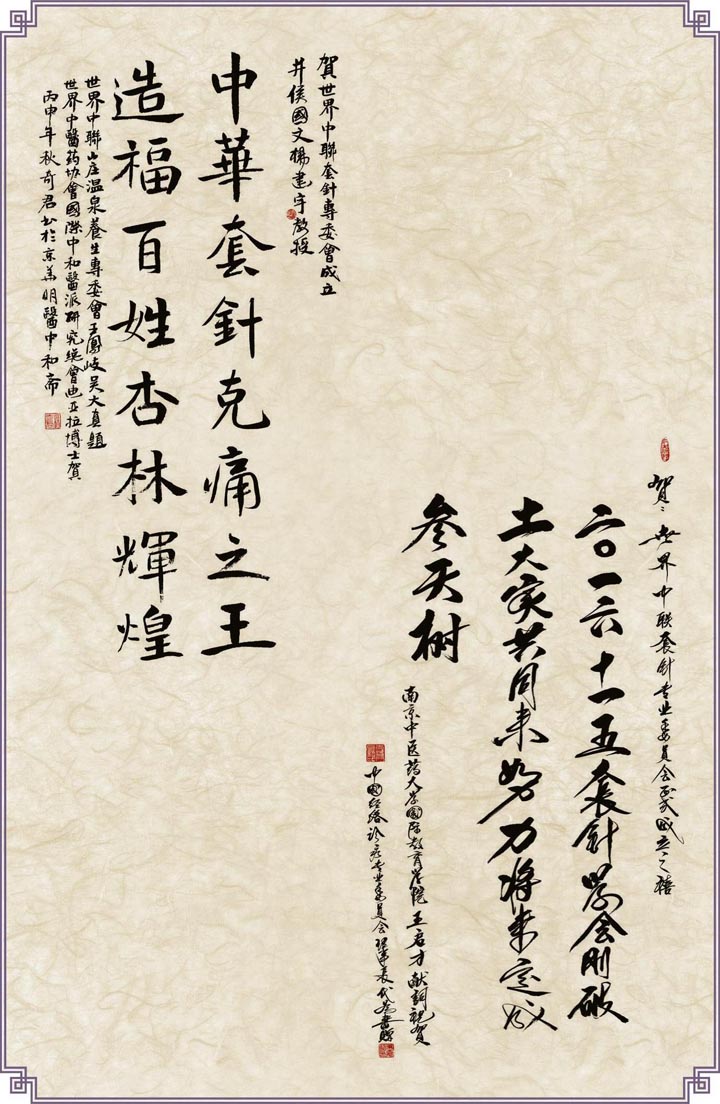 賀:世界中联套针专业委员会正式成立之禧
二〇一六十一五套针学会刚破
土大家共同来努力将来定成
叁天树
南京中医药大学国际教育学院王启才献词祝贺
中国经络诊疗专业委员会
賀世界中聯套針專委會成立
并侯國文楊建宇教授
中華套針克痛之王
造福百姓杏林輝煌
世界中聯山庄温泉養生專委會王鳳岐吴大真題
世界中醫药协會國際中和醫派研究總會曲亚拉博士賀
丙申年秋奇君书於京華明醫中和斋